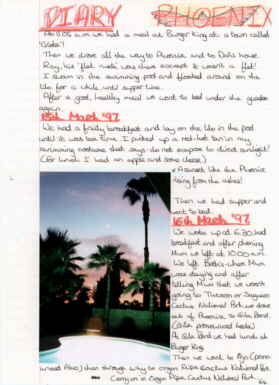 DIARY PHOENIX
At 11.05 a.m. we had a meal at Burger King at a town called
Then we drove all the way to Phoenix, and to Dad's house.
Roy, his flat mate was there except it wasn't a flat!
I swam in the swimming pool and floated around on the
lilo for a while until supper time.
After a good, healthy meal we went to bed under the
again.
15th March '97
We had a fruity breakfast and lay on the lilo in the pool
until it was tea time. I picked up a red-hot tan in my
swimming costume that says do not expose to direct sunlight!
(For lunch I had an apple and some cheese.)
A sunset like the Phoenix
rising from the ashes!
Then we had supper and
went to bed.
16th March '97
We woke up at 6.30 had
breakfast and after phoning
Mum we left at 10.00 a.m.
We left where Mum
was staying and after
telling Mum that we weren't
going to Tucson or Saguaro
Cactus National Park we drove
out of Phoenix, to Gila Bend.
(Gila pronounced heela)
At Gila Bend we had lunch at
Burger King.
Then we went to Ajo (pron-
ounced Aho) then through Why to Organ Pipe Cactus National Park
Camping in Organ Pipe Cactus National Park.